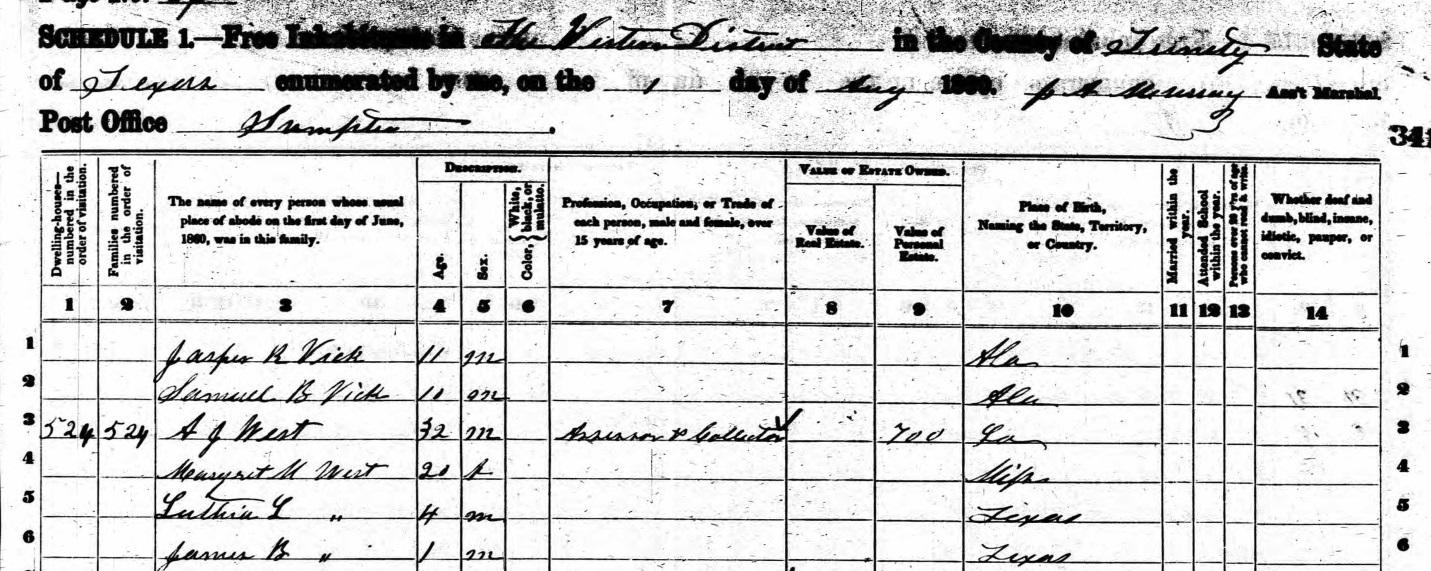 Page No.
SCHEDULE 1.—Free Inhabitants in The Western District in the County of Trinity State
of Texas enumerated by me, on the 1 day of Aug 1860. Ass't Marshal.
Post Office Sumpter.
34
Dwelling-houses—numbered in the order of visitation.
Families numbered in the order of visitation.
The name of every person whose usual place of abode on the first day of June, 1860, was in this family.
DESCRIPTION.
Age.
Sex.
Color, { White, black, or mulatto.
Profession, Occupation, or Trade of each person, male and female, over 15 years of age.
VALUE OF ESTATE OWNED.
Value of Real Estate.
Value of Personal Estate.
Place of Birth, Naming the State, Territory, or Country.
Married within the year.
Attended School within the year.
Persons over 20 y'rs of age who cannot read & write.
Whether deaf and dumb, blind, insane, idiotic, pauper, or convict.
1 2 3 4 5 6 7 8 9 10 11 12 13 14
1 Jasper R Vick 11 m Ala 1
2 Samuel B Vick 10 m Ala 2
3 524 524 A J West 32 m Assessor & Collector 700 La 3
4 Margret West 20 f Miss 4
5 L " 4 m Texas 5
6 James B " 1 m Texas 6